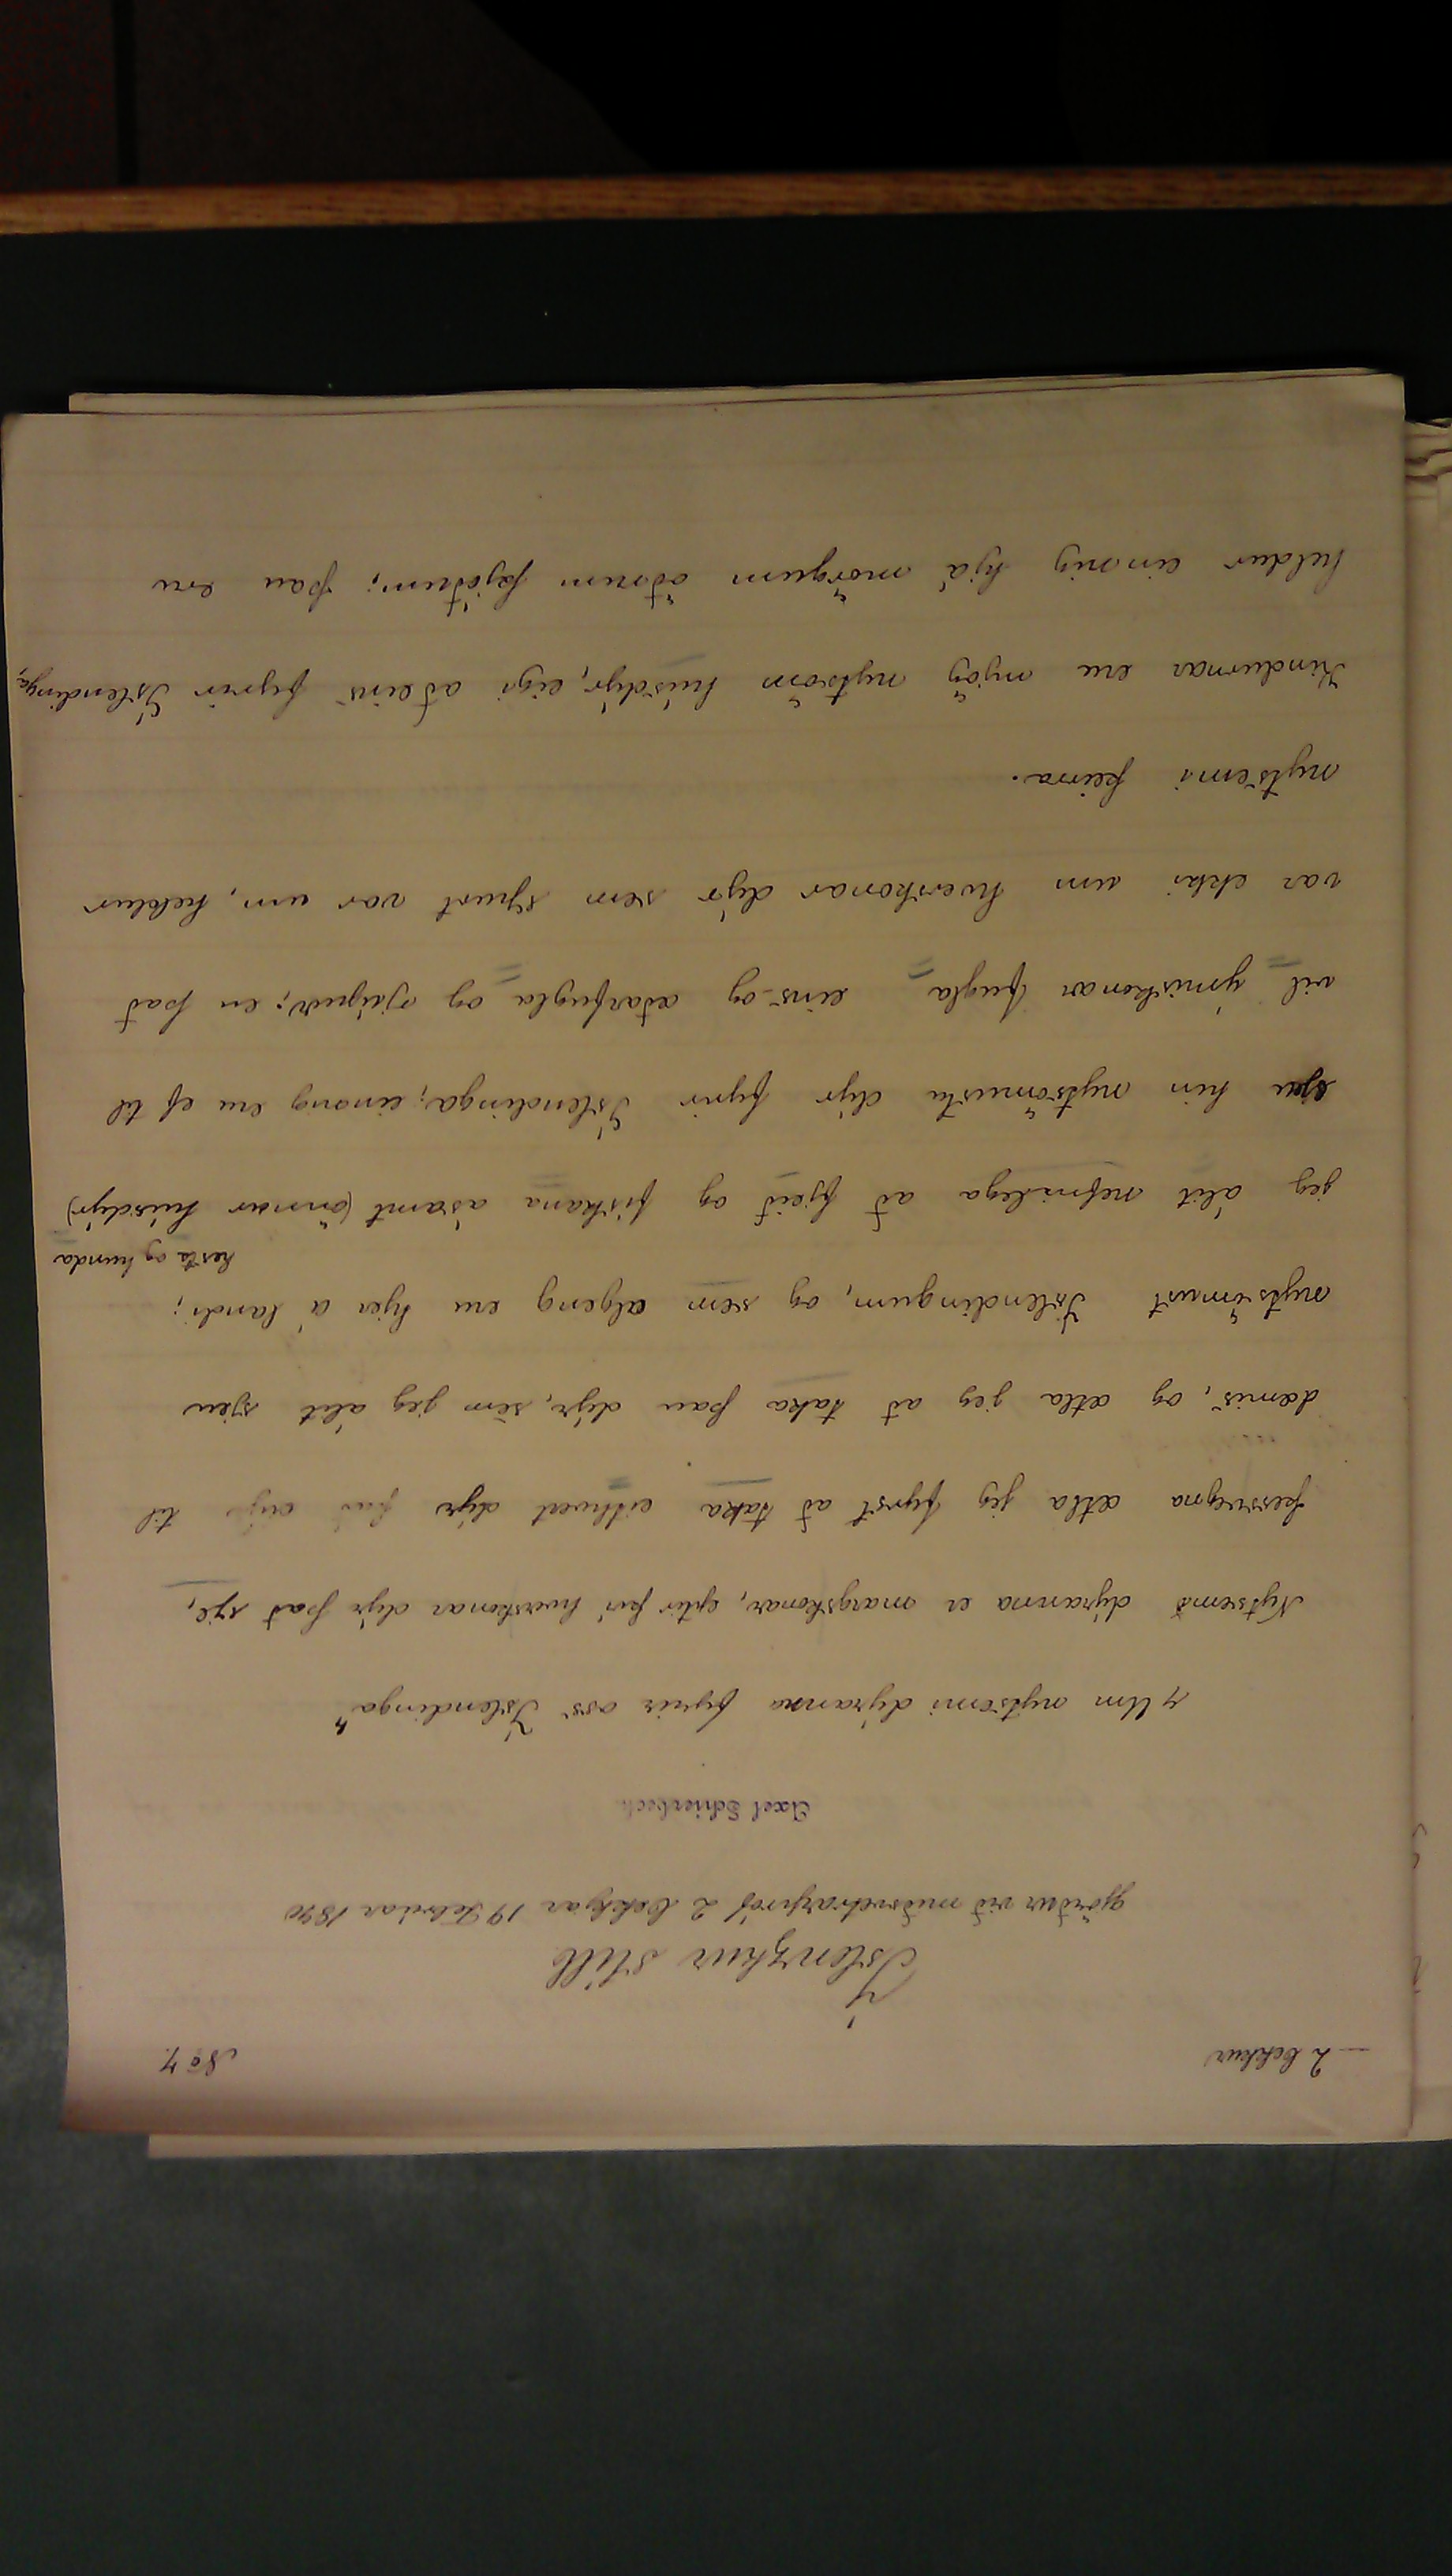 2 bekkur
No 7.
Íslenzkur stíll
gjörður við miðsvetrarpróf 2 bekkjar 19 Febrúar 1890
Axel Schierbeck
„Um nytsemi dýranna fyrir oss Íslendinga"
Nytsemd dýranna er margskonar, eptir því hverskonar dýr það sje,
þessvegna ætla jeg fyrst að taka eitthvert dýr til
dæmis, og ætla jeg að taka þau dýr, sem jeg álít sjeu
nytsömust Íslendingum, og sem algeng eru hjer á landi;
hesta og hunda
jeg álít nefnilega að fjeið og fiskana ásamt (önnur húsdýr)
sjeu hin nytsömustu dýr fyrir Íslendinga; einnig eru ef til
vil ýmiskonar fugla eins-og æðarfugla og rjúpur; en það
var ekki um hverskonar dýr sem spurt var um, heldur
nytsemi þeirra.
Kindurnar eru mjög nytsöm húsdýr, eigi aðeins fyrir Íslendinga,
heldur einnig hjá mörgum öðrum þjóðum; þau eru